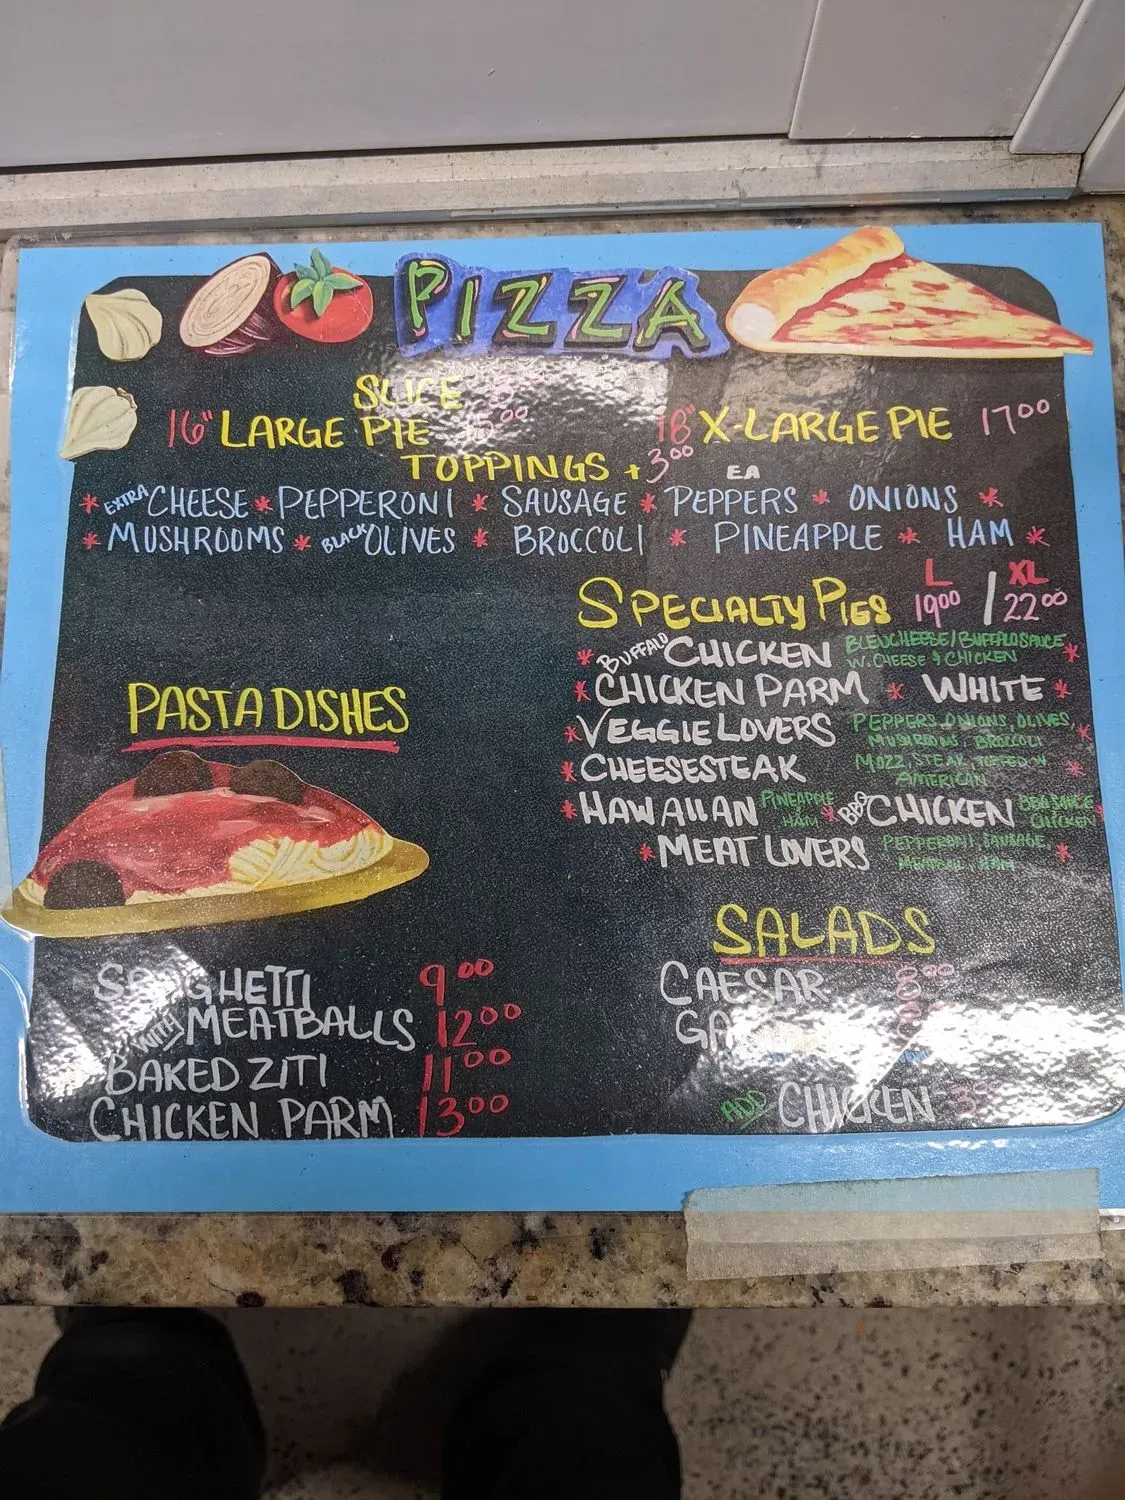 PIZZA
SLICE
16" LARGE PIE 15.00 18" X-LARGE PIE 17.00
TOPPINGS + 3.00 EA
* EXTRA CHEESE * PEPPERONI * SAUSAGE * PEPPERS * ONIONS *
* MUSHROOMS * BLACK OLIVES * BROCCOLI * PINEAPPLE * HAM *
L / XL
SPECIALTY PIES 19.00 / 22.00
* BUFFALO CHICKEN BLEUCHEESE/BUFFALO SAUCE W. CHEESE & CHICKEN *
* CHICKEN PARM * WHITE *
* VEGGIE LOVERS PEPPERS, ONIONS, OLIVES MUSHROOMS BROCCOLI *
* CHEESESTEAK MOZZ, STEAK, TOPPED W AMERICAN *
* HAWAIIAN PINEAPPLE HAM * BBQ CHICKEN BBQ SAUCE CHICKEN *
* MEAT LOVERS PEPPERONI, SAUSAGE, HAM *
PASTA DISHES
SPAGHETTI 9.00
WITH MEATBALLS 12.00
BAKED ZITI 11.00
CHICKEN PARM 13.00
SALADS
CAESAR 8.00
ADD CHICKEN